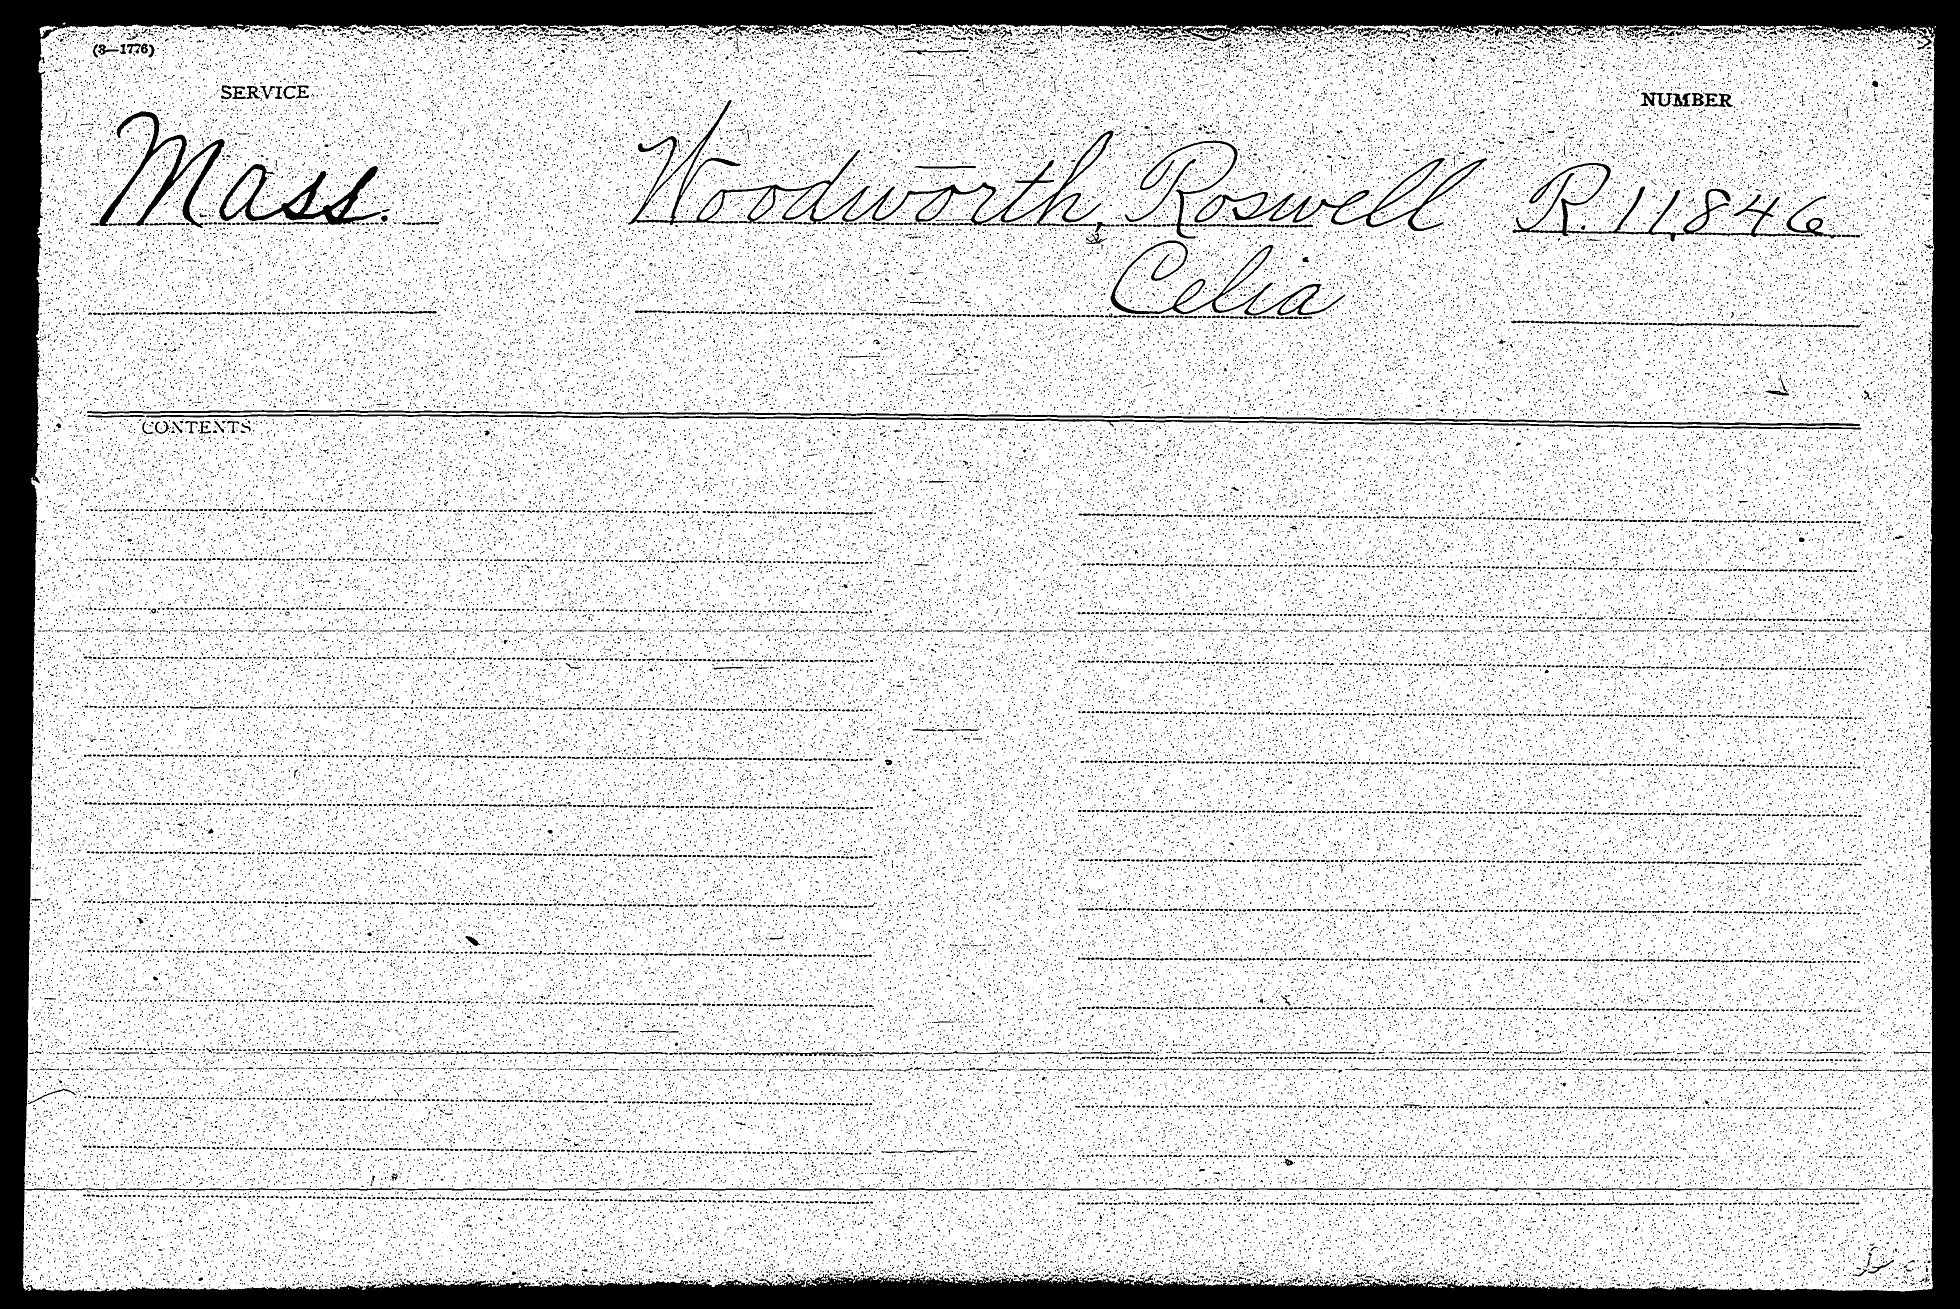 (3—1776)
SERVICE
NUMBER
Mass.
Woodworth, Roswell
R. 11,846
Celia
CONTENTS